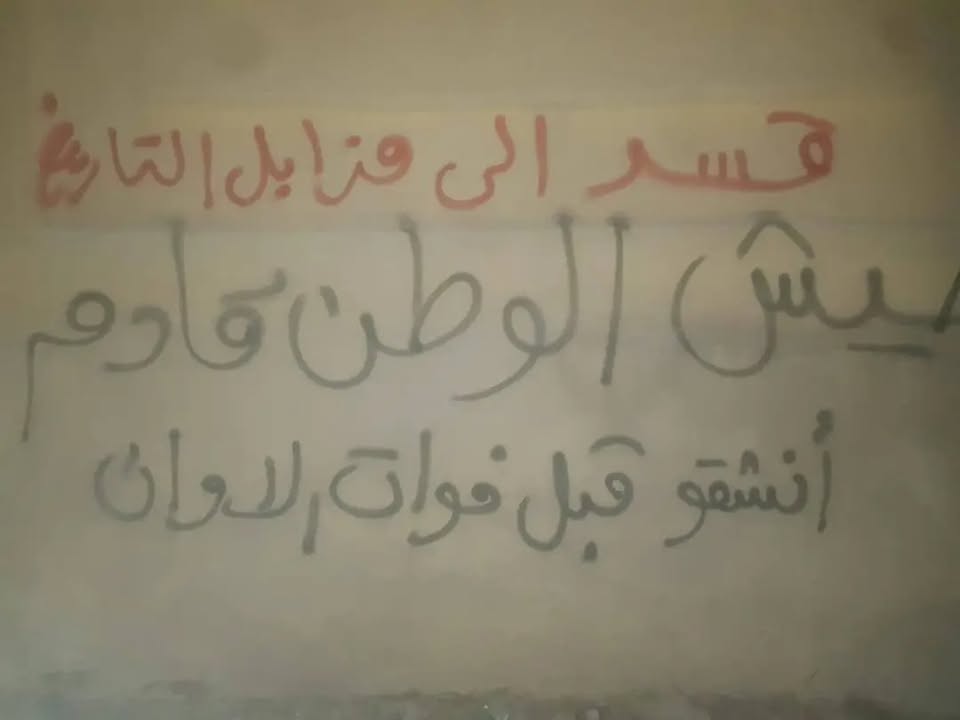 قسد الى مزابل التاريخ
جيش الوطن قادم
أنشقو قبل فوات الاوان